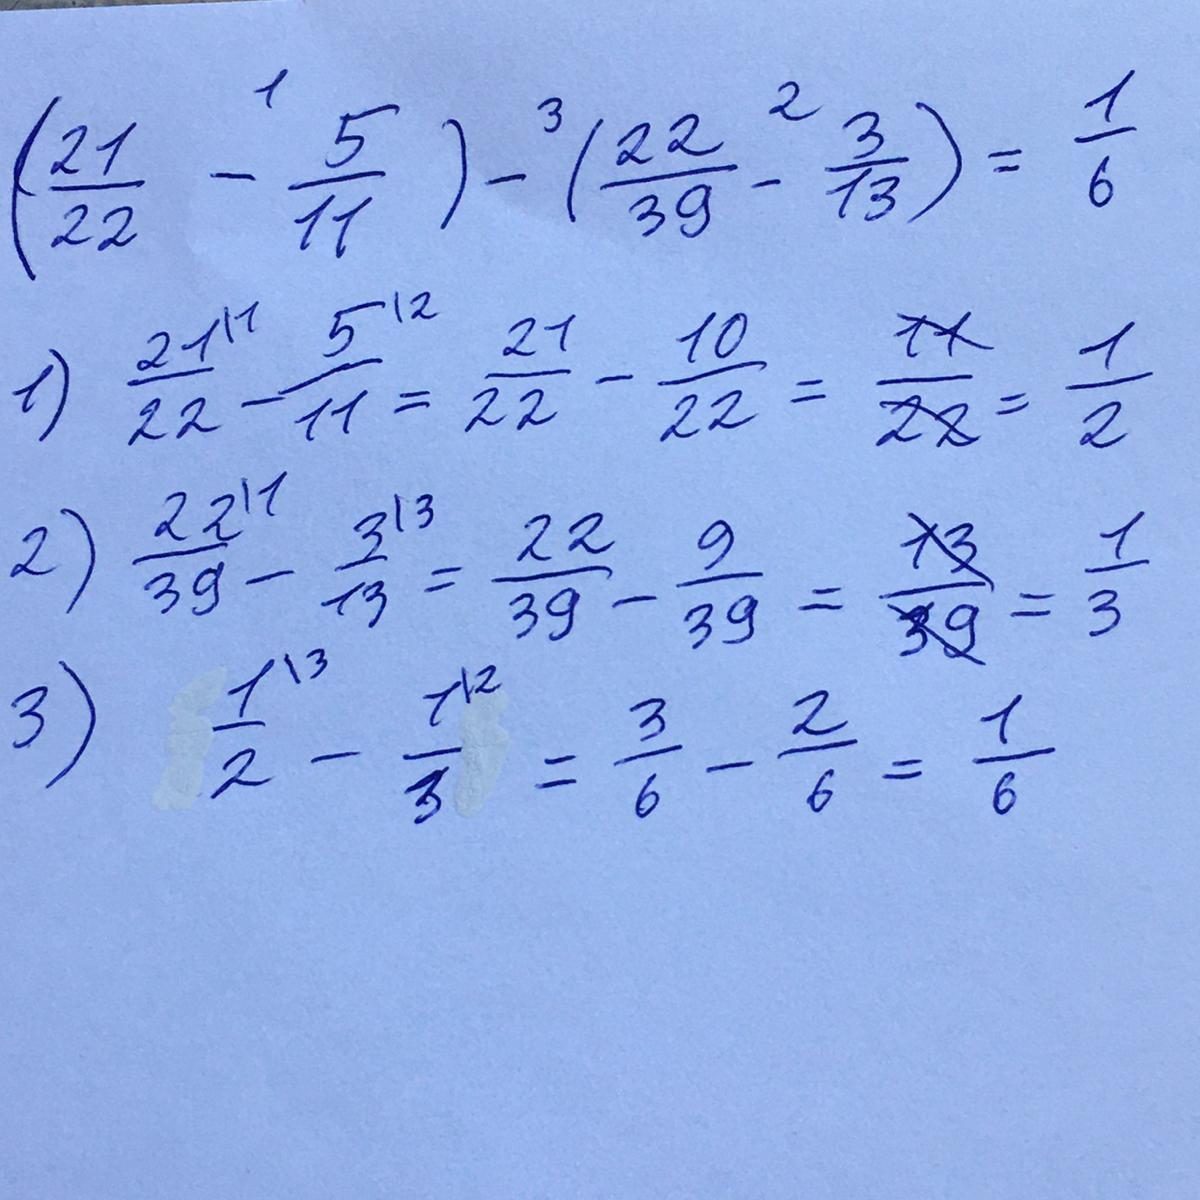 (21/22 -¹ 5/11) -³ (22/39 -² 3/13) = 1/6
1) 21\1/22 - 5\2/11 = 21/22 - 10/22 = 11/22 = 1/2
2) 22\1/39 - 3\3/13 = 22/39 - 9/39 = 13/39 = 1/3
3) 1\3/2 - 1\2/3 = 3/6 - 2/6 = 1/6